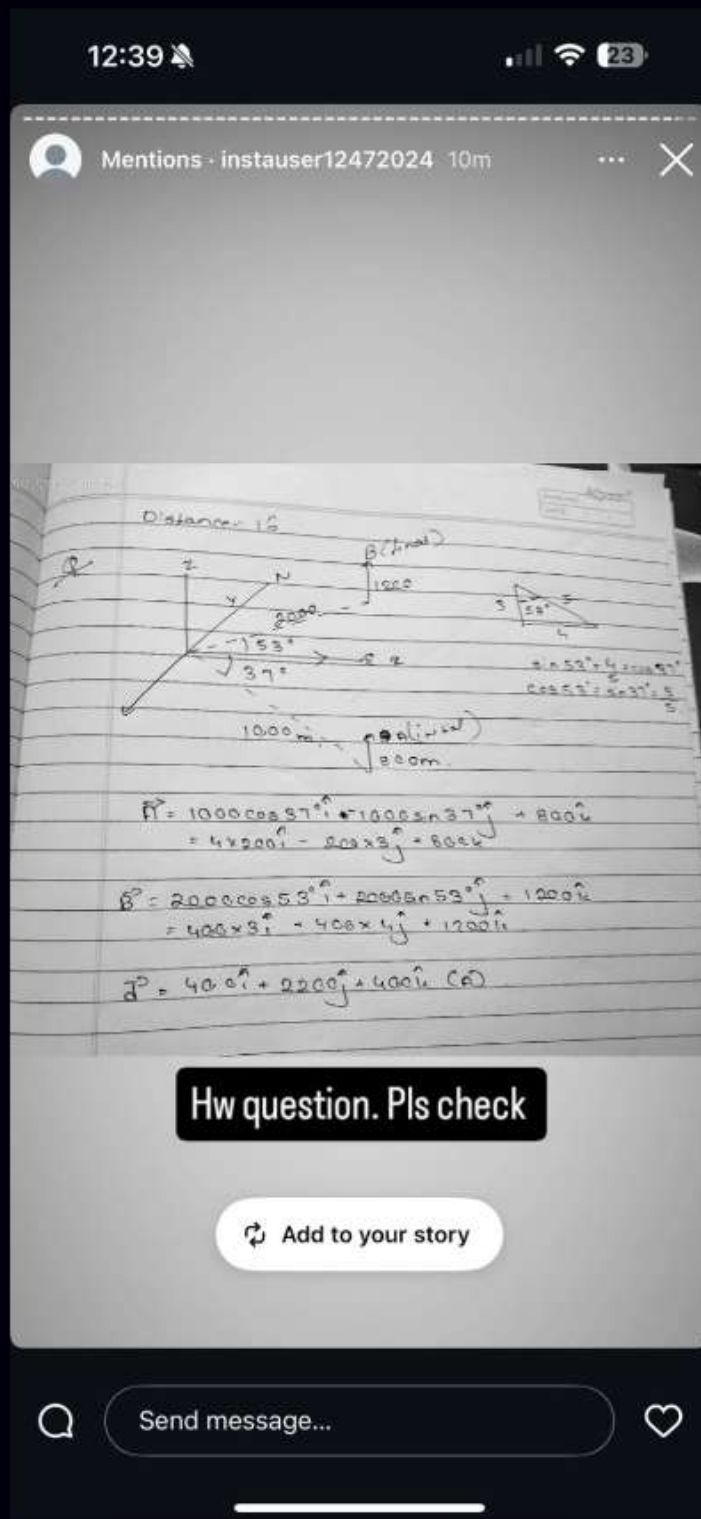 12:39
23
Mentions · instauser12472024 10m
Distance- 15
Q
z
N
Y
B (final)
1200
2000
53°
37°
x
1000 m
(initial)
800m.
5
53°
4
sin 53° = 4/5 = cos 37°
cos 53° = sin 37° = 3/5
A = 1000 cos 37° î - 1000 sin 37° ĵ + 800 k̂
= 4×200 î - 200×3 ĵ + 800 k̂
B = 2000 cos 53° î + 2000 sin 53° ĵ + 1200 k̂
= 400×3 î + 400×4 ĵ + 1200 k̂
d = 400 î + 2200 ĵ + 400 k̂ (A)
Hw question. Pls check
Add to your story
Send message...